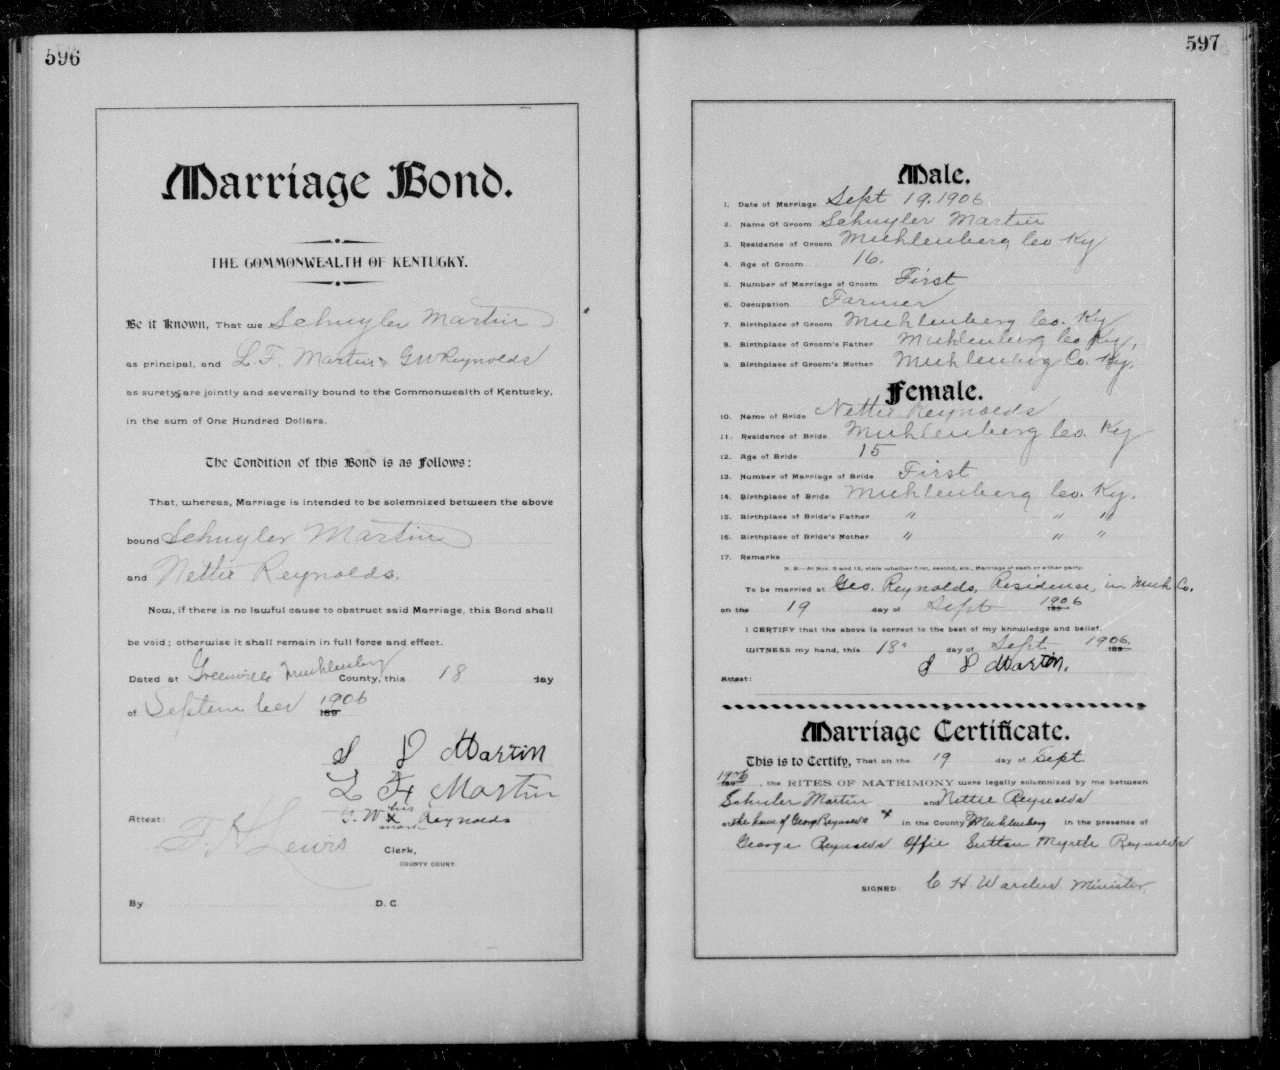 596
Marriage Bond.
THE COMMONWEALTH OF KENTUCKY.
Be it Known, That we Schuyler Martin
as principal, and L.F. Martin & GW Reynolds
as suretys are jointly and severally bound to the Commonwealth of Kentucky,
in the sum of One Hundred Dollars.
The Condition of this Bond is as Follows:
That, whereas, Marriage is intended to be solemnized between the above
bound Schuyler Martin
and Nettie Reynolds.
Now, if there is no lawful cause to obstruct said Marriage, this Bond shall
be void; otherwise it shall remain in full force and effect.
Dated at Greenville Muhlenberg County, this 18 day
of September 1906 189
S P Martin
L F Martin
G. W his x mark Reynolds
Attest: F. H Lewis
Clerk,
COUNTY COURT.
By D. C.
597
Male.
1. Date of Marriage Sept 19. 1906
2. Name Of Groom Schuyler Martin
3. Residence of Groom Muhlenberg Co Ky
4. Age of Groom 16.
5. Number of Marriage of Groom First
6. Occupation Farmer
7. Birthplace of Groom Muhlenberg Co. Ky
8. Birthplace of Groom's Father Muhlenberg Co Ky,
9. Birthplace of Groom's Mother Muhlenberg Co. Ky.
Female.
10. Name of Bride Nettie Reynolds
11. Residence of Bride Muhlenberg Co. Ky
12. Age of Bride 15
13. Number of Marriage of Bride First
14. Birthplace of Bride Muhlenberg Co. Ky.
15. Birthplace of Bride's Father " " "
16. Birthplace of Bride's Mother " " "
17. Remarks
N. B.—At Nos. 5 and 13, state whether first, second, etc., Marriage of each or either party.
To be married at Geo. Reynolds, Residence, in Muh Co.
on the 19 day of Sept 1906 189
I CERTIFY that the above is correct to the best of my knowledge and belief.
WITNESS my hand, this 18" day of Sept 1906. 189
S P Martin.
Attest:
Marriage Certificate.
This is to Certify, That on the 19 day of Sept
1906 189 , the RITES OF MATRIMONY were legally solemnized by me between
Schuler Martin and Nettie Reynolds
at the house of George Reynolds x in the County Muhlenberg in the presence of
George Reynolds Offie Sutton Myrtle Reynolds
SIGNED C H Minister